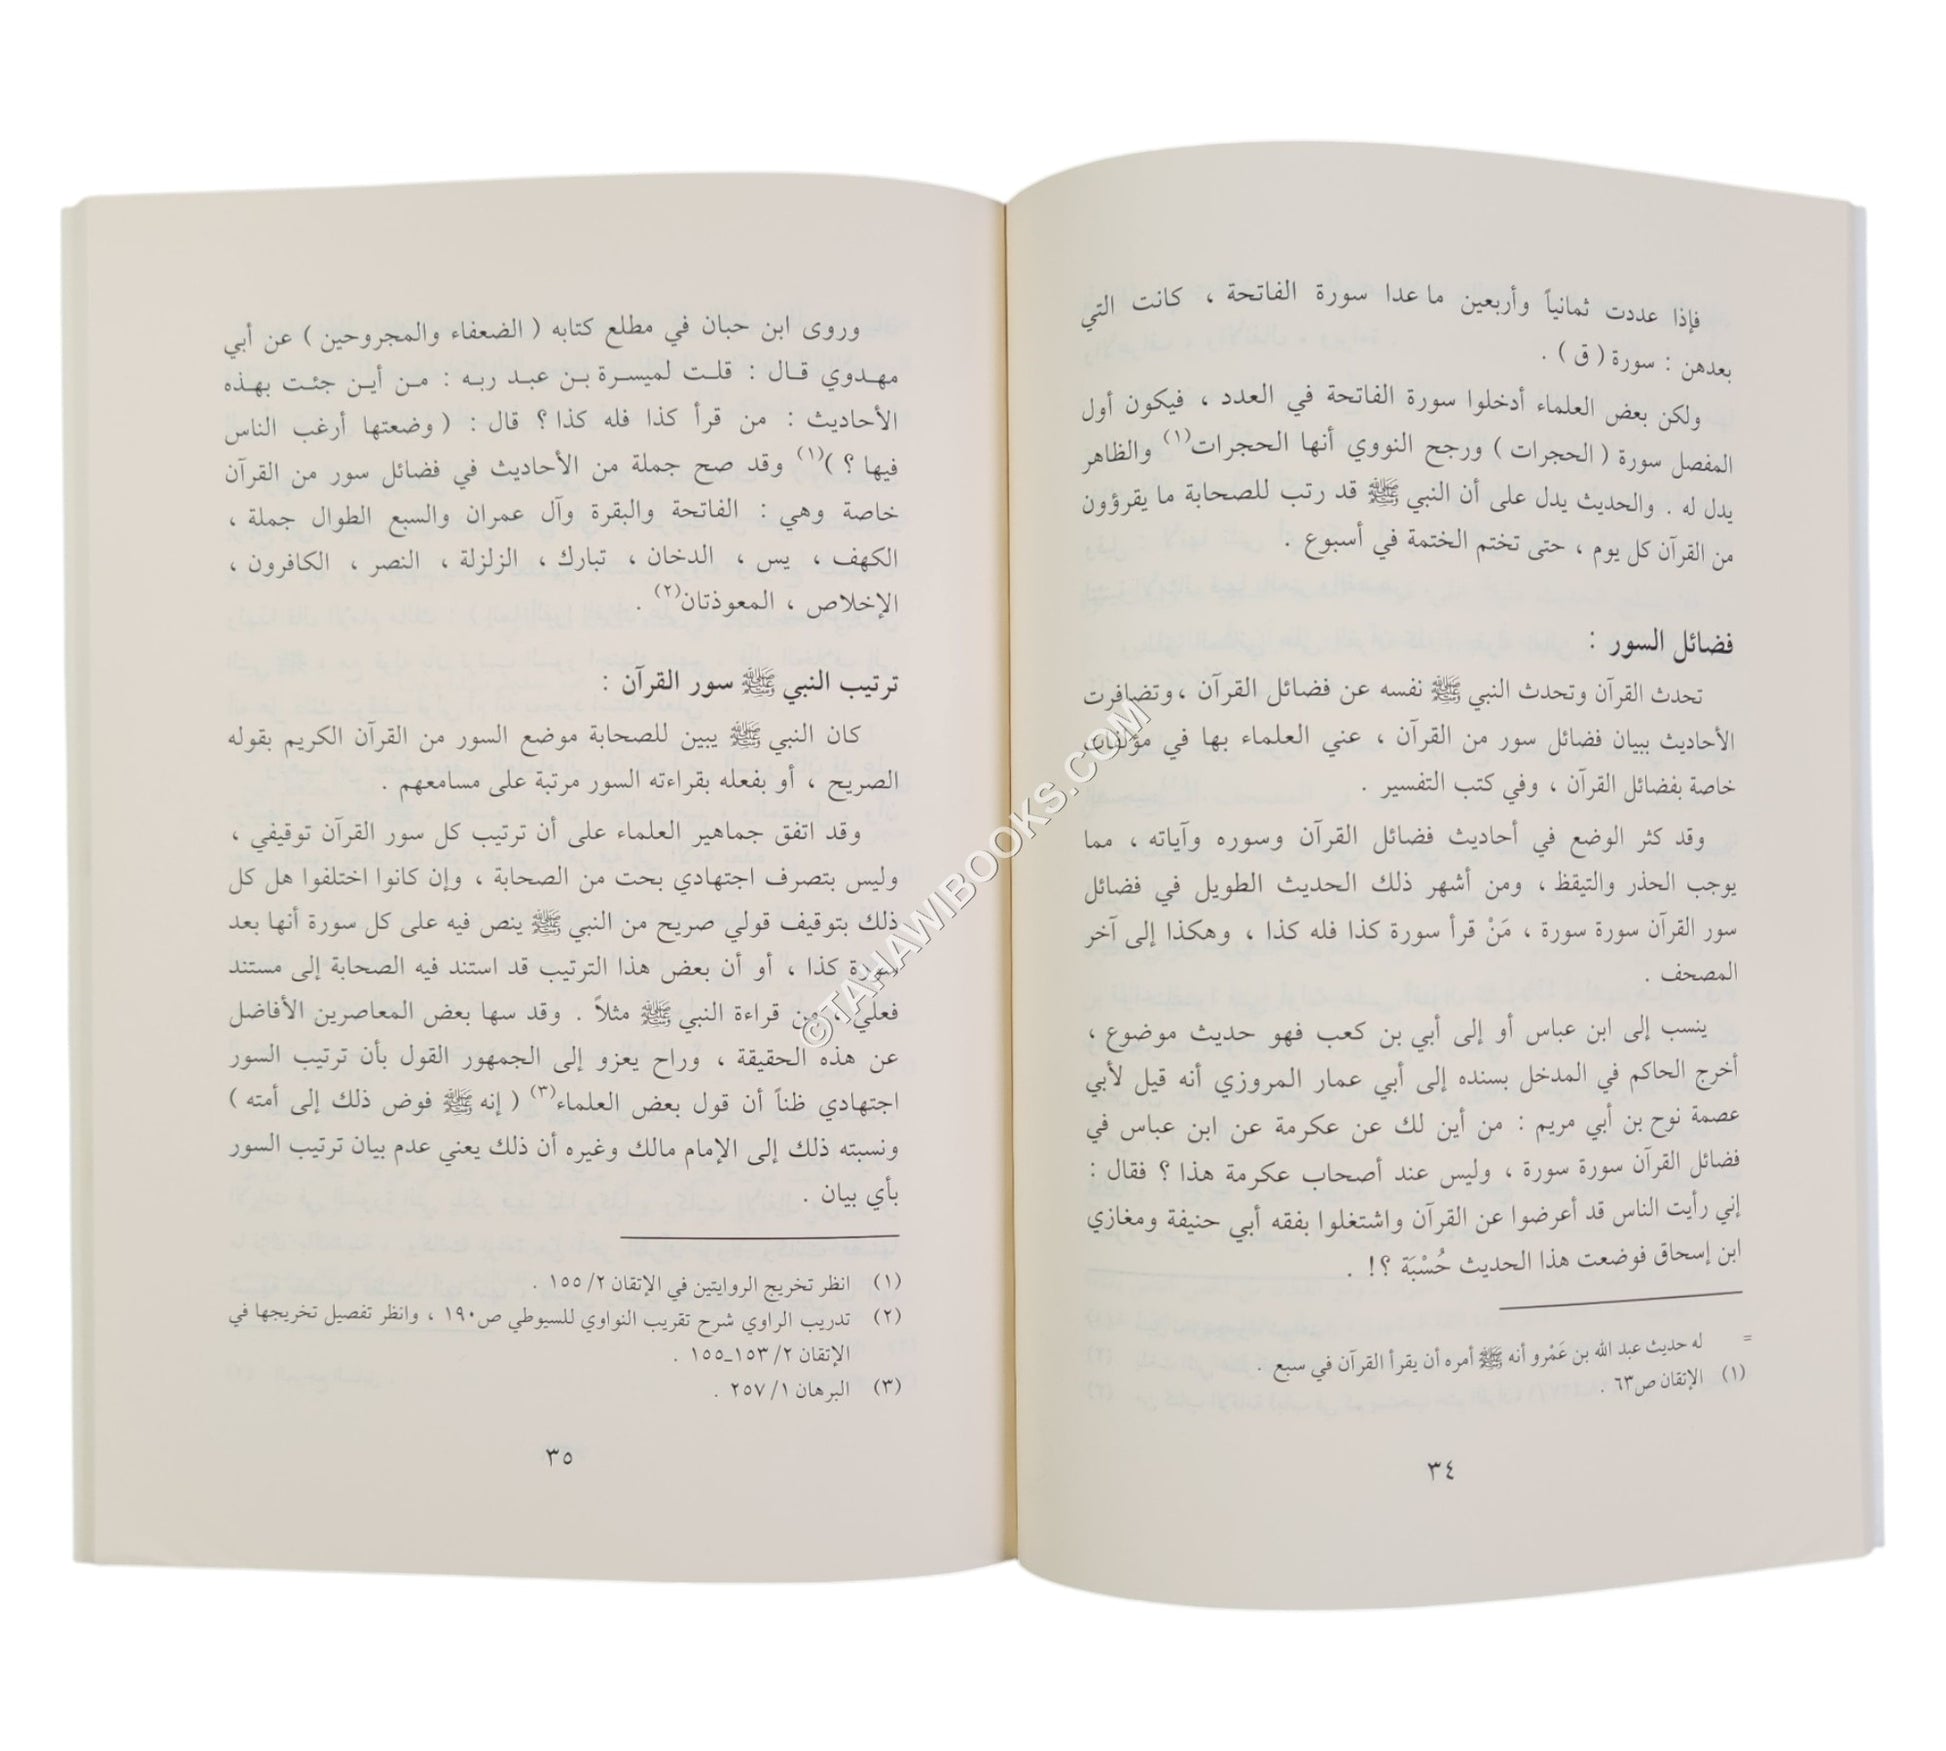 فإذا عددت ثمانياً وأربعين ما عدا سورة الفاتحة ، كانت التي
بعدهن : سورة ( ق ) .
ولكن بعض العلماء أدخلوا سورة الفاتحة في العدد ، فيكون أول
المفصل سورة ( الحجرات ) ورجح النووي أنها الحجرات(١) والظاهر
يدل له . والحديث يدل على أن النبي ﷺ قد رتب للصحابة ما يقرؤون
من القرآن كل يوم ، حتى تختم الختمة في أسبوع .
فضائل السور :
تحدث القرآن وتحدث النبي ﷺ نفسه عن فضائل القرآن ، وتضافرت
الأحاديث ببيان فضائل سور من القرآن ، عني العلماء بها في مؤلفات
خاصة بفضائل القرآن ، وفي كتب التفسير .
وقد كثر الوضع في أحاديث فضائل القرآن وسوره وآياته ، مما
يوجب الحذر والتيقظ ، ومن أشهر ذلك الحديث الطويل في فضائل
سور القرآن سورة سورة ، مَنْ قرأ سورة كذا فله كذا ، وهكذا إلى آخر
المصحف .
ينسب إلى ابن عباس أو إلى أبي بن كعب فهو حديث موضوع ،
أخرج الحاكم في المدخل بسنده إلى أبي عمار المروزي أنه قيل لأبي
عصمة نوح بن أبي مريم : من أين لك عن عكرمة عن ابن عباس في
فضائل القرآن سورة سورة ، وليس عند أصحاب عكرمة هذا ؟ فقال :
إني رأيت الناس قد أعرضوا عن القرآن واشتغلوا بفقه أبي حنيفة ومغازي
ابن إسحاق فوضعت هذا الحديث حُسْبَة ؟! .
= له حديث عبد الله بن عَمْرو أنه ﷺ أمره أن يقرأ القرآن في سبع .
(١) الإتقان ص٦٣ .
٣٤
وروى ابن حبان في مطلع كتابه ( الضعفاء والمجروحين ) عن أبي
مهدوي قال : قلت لميسرة بن عبد ربه : من أين جئت بهذه
الأحاديث : من قرأ كذا فله كذا ؟ قال : ( وضعتها أرغب الناس
فيها ؟ )(١) وقد صح جملة من الأحاديث في فضائل سور من القرآن
خاصة وهي : الفاتحة والبقرة وآل عمران والسبع الطوال جملة ،
الكهف ، يس ، الدخان ، تبارك ، الزلزلة ، النصر ، الكافرون ،
الإخلاص ، المعوذتان(٢) .
ترتيب النبي ﷺ سور القرآن :
كان النبي ﷺ يبين للصحابة موضع السور من القرآن الكريم بقوله
الصريح ، أو بفعله بقراءته السور مرتبة على مسامعهم .
وقد اتفق جماهير العلماء على أن ترتيب كل سور القرآن توقيفي ،
وليس بتصرف اجتهادي بحت من الصحابة ، وإن كانوا اختلفوا هل كل
ذلك بتوقيف قولي صريح من النبي ﷺ ينص فيه على كل سورة أنها بعد
سورة كذا ، أو أن بعض هذا الترتيب قد استند فيه الصحابة إلى مستند
فعلي ، من قراءة النبي ﷺ مثلاً . وقد سها بعض المعاصرين الأفاضل
عن هذه الحقيقة ، وراح يعزو إلى الجمهور القول بأن ترتيب السور
اجتهادي ظناً أن قول بعض العلماء(٣) ( إنه ﷺ فوض ذلك إلى أمته )
ونسبته ذلك إلى الإمام مالك وغيره أن ذلك يعني عدم بيان ترتيب السور
بأي بيان .
(١) انظر تخريج الروايتين في الإتقان ٢/ ١٥٥ .
(٢) تدريب الراوي شرح تقريب النواوي للسيوطي ص١٩٠ ، وانظر تفصيل تخريجها في
الإتقان ٢/ ١٥٣ـ١٥٥ .
(٣) البرهان ١/ ٢٥٧ .
٣٥
©TAHAWIBOOKS.COM